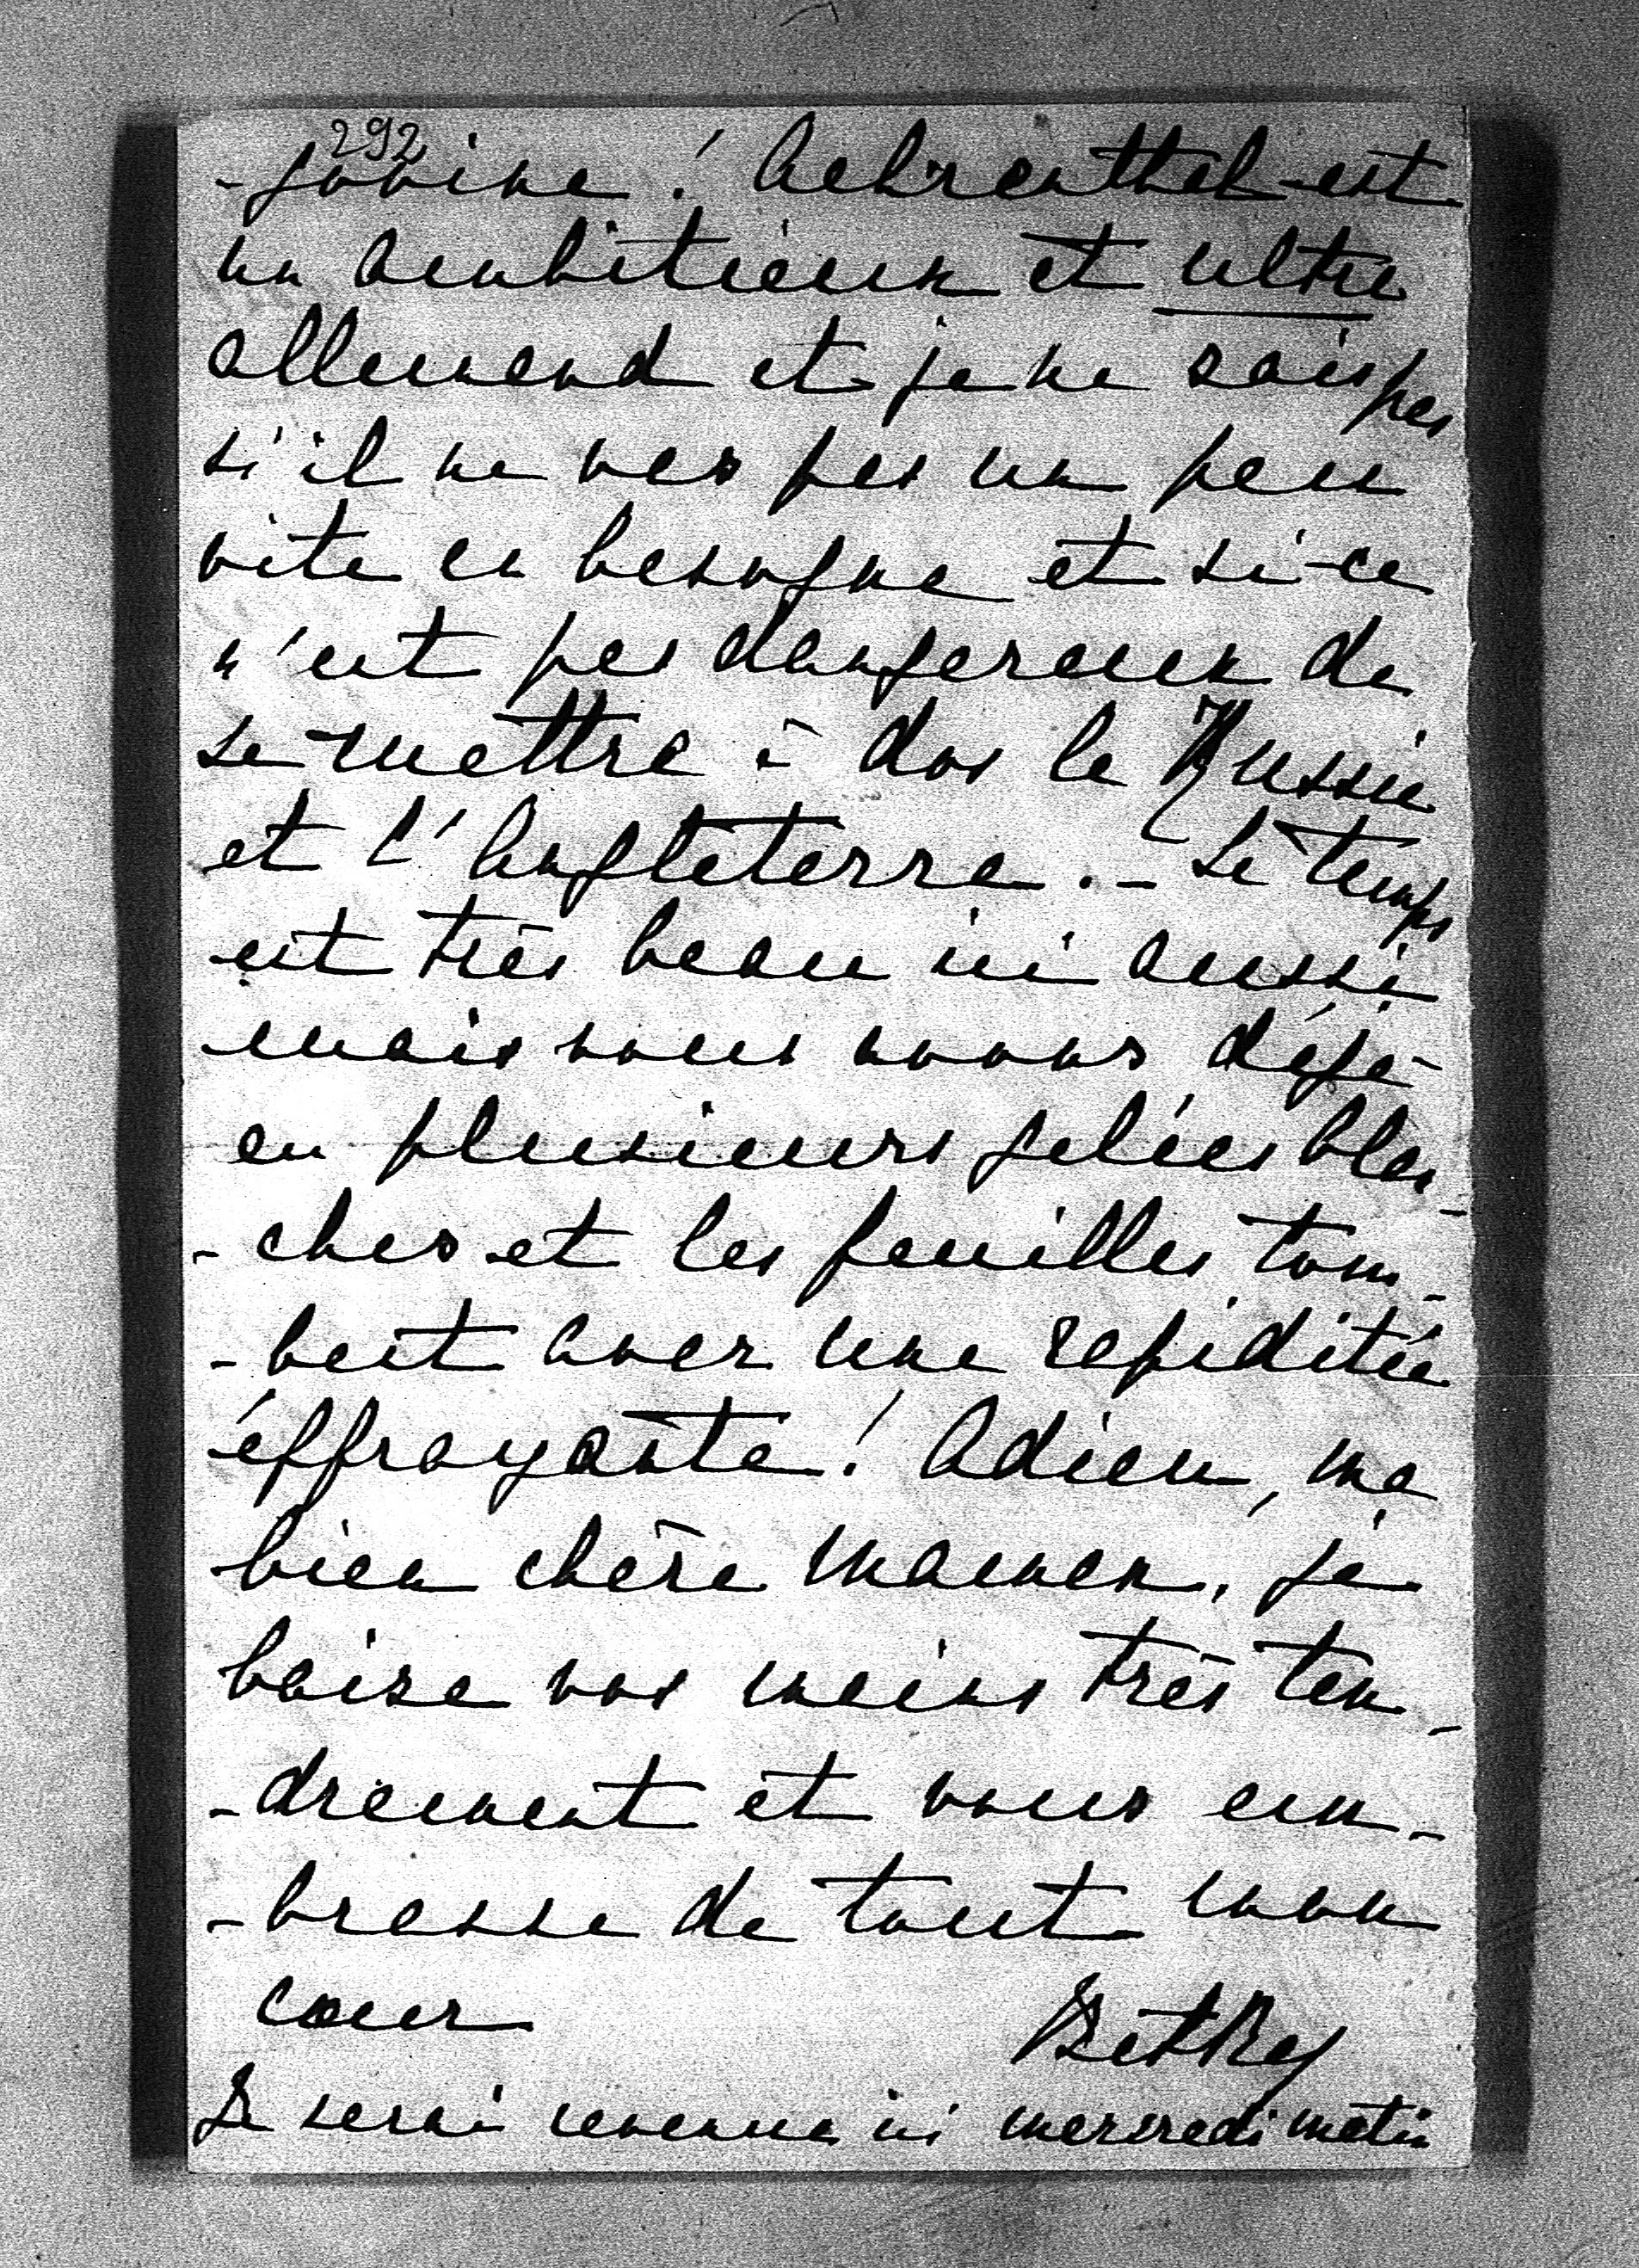 292
-govine! Aehrenthal est
un ambitieux et ultra
allemand et je ne sais pas
s'il ne vas pas un peu
vite en besogne et si ce
n'est pas dangereux de
se mettre à dos la Russie
et l'Angleterre. - Le temps
est très beau ici aussi
mais nous avons déjà
eu plusieurs gelées blan-
-ches et les feuilles tom-
-bent avec une rapiditée
éffrayante! Adieu, ma
bien chère Maman, je
baise vos mains très ten-
-drement et vous em-
-brasse de tout mon
cœur
Je serai revenue ici mercredi matin